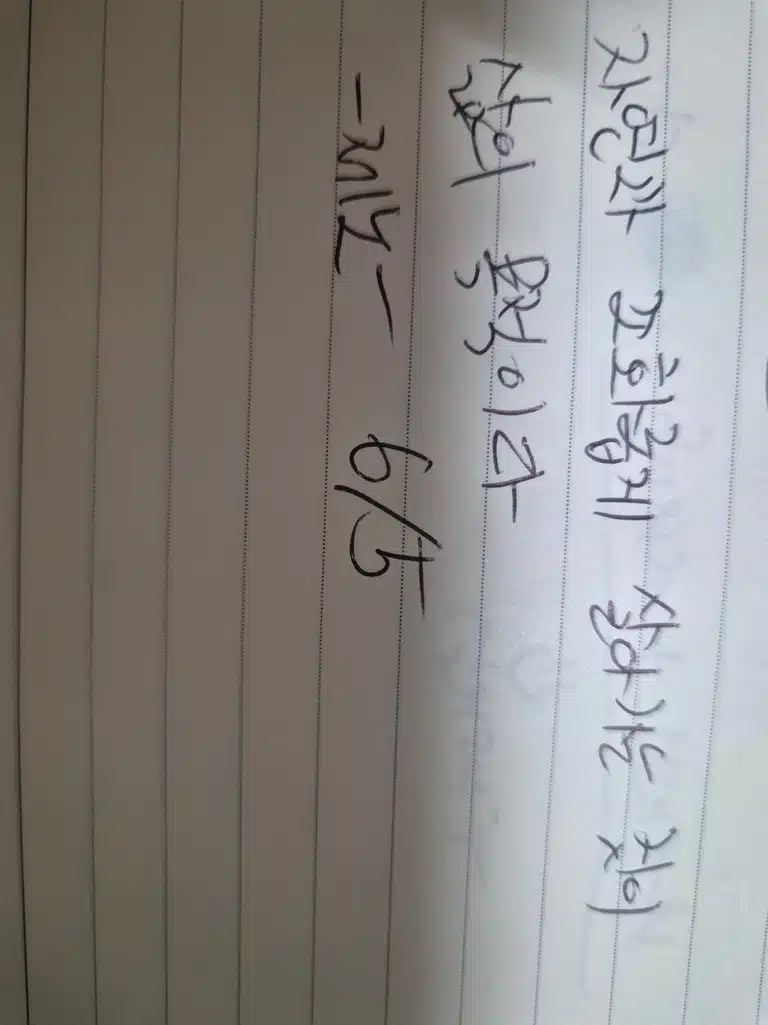 자연과 조화롭게 살아가는 것이
삶의 목적이다
-제논- 6/5